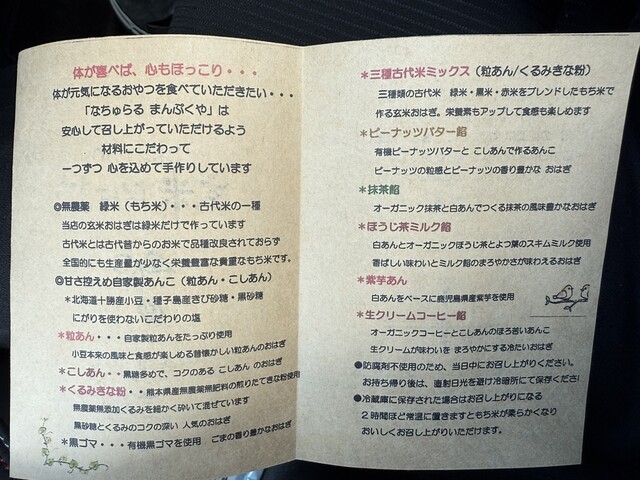 体が喜べば、心もほっこり・・・
体が元気になるおやつを食べていただきたい・・・
「なちゅらる まんぷくや」は
安心して召し上がっていただけるよう
材料にこだわって
一つずつ 心を込めて手作りしています
◎無農薬 緑米（もち米）・・・古代米の一種
当店の玄米おはぎは緑米だけで作っています
古代米とは古代昔からのお米で品種改良されておらず
全国的にも生産量が少なく栄養豊富な貴重なもち米です。
◎甘さ控えめ自家製あんこ（粒あん・こしあん）
＊北海道十勝産小豆・種子島産きび砂糖・黒砂糖
にがりを使わないこだわりの塩
＊粒あん・・・自家製粒あんをたっぷり使用
小豆本来の風味と食感が楽しめる昔懐かしい粒あんのおはぎ
＊こしあん・・黒糖多めで、コクのある こしあん のおはぎ
＊くるみきな粉・・熊本県産無農薬無肥料の煎りたてきな粉使用
無農薬無添加くるみを細かく砕いて混ぜています
黒砂糖とくるみのコクの深い 人気のおはぎ
＊黒ゴマ・・・有機黒ゴマを使用 ごまの香り豊かなおはぎ
＊三種古代米ミックス（粒あん/くるみきな粉）
三種類の古代米 緑米・黒米・赤米をブレンドしたもち米で
作る玄米おはぎ。栄養素もアップして食感も楽しめます
＊ピーナッツバター餡
有機ピーナッツバターと こしあんで作るあんこ
ピーナッツの粒感とピーナッツの香り豊かな おはぎ
＊抹茶餡
オーガニック抹茶と白あんでつくる抹茶の風味豊かなおはぎ
＊ほうじ茶ミルク餡
白あんとオーガニックほうじ茶とよつ葉のスキムミルク使用
香ばしい味わいとミルク餡のまろやかさが味わえるおはぎ
＊紫芋あん
白あんをベースに鹿児島県産紫芋を使用
＊生クリームコーヒー餡
オーガニックコーヒーとこしあんのほろ苦いあんこ
生クリームが味わいを まろやかにする冷たいおはぎ
●防腐剤不使用のため、当日中にお召し上がりください。
お持ち帰り後は、直射日光を避け冷暗所にて保存くださ
●冷蔵庫に保存された場合はお召し上がりになる
２時間ほど常温に置きますともち米が柔らかくなり
おいしくお召し上がりいただけます。